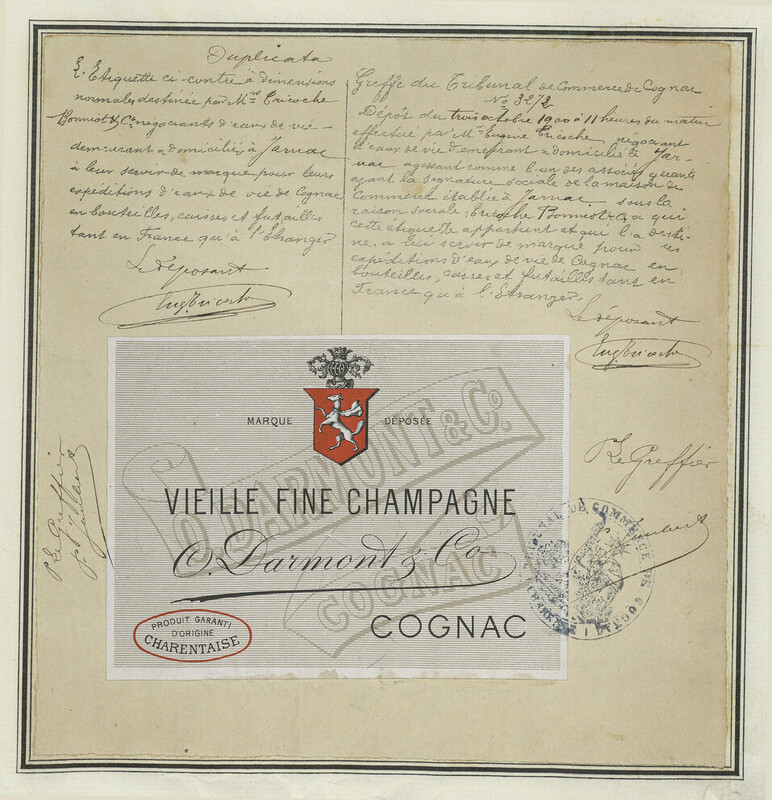 Duplicata
Etiquette ci-contre à dimensions
normales destinée par Mrs Tricoche
Bonniot & Co négociants d'eaux de vie
demeurant & domiciliés à Jarnac
à leur servir de marque pour leurs
expéditions d'eaux de vie de Cognac
en bouteilles, caisses et futailles
tant en France qu'à l'Etranger
Le déposant
Eug. Tricoche
Greffe du Tribunal de Commerce de Cognac
No 3272
Dépôt du trois octobre 1900 à 11 heures du matin
effectué par Mr Eugène Tricoche, négociant
d'eaux de vie demeurant & domicilié à Jar-
nac agissant comme l'un des associés gérants
ayant la signature sociale de la maison de
Commerce établie à Jarnac sous la
raison sociale: Tricoche Bonniot & Co a qui
cette étiquette appartient et qui l'a desti-
née a leur servir de marque pour les
expéditions d'eaux de vie de Cognac en
bouteilles, caisses et futailles tant en
France qu'à l'Etranger.
Le déposant
Eug. Tricoche
Le Greffier
Le Greffier
MARQUE DÉPOSÉE
O. DARMONT & Co.
COGNAC
VIEILLE FINE CHAMPAGNE
O. Darmont & Co
COGNAC
PRODUIT GARANTI
D'ORIGINE
CHARENTAISE
TRIBUNAL DE COMMERCE DE COGNAC